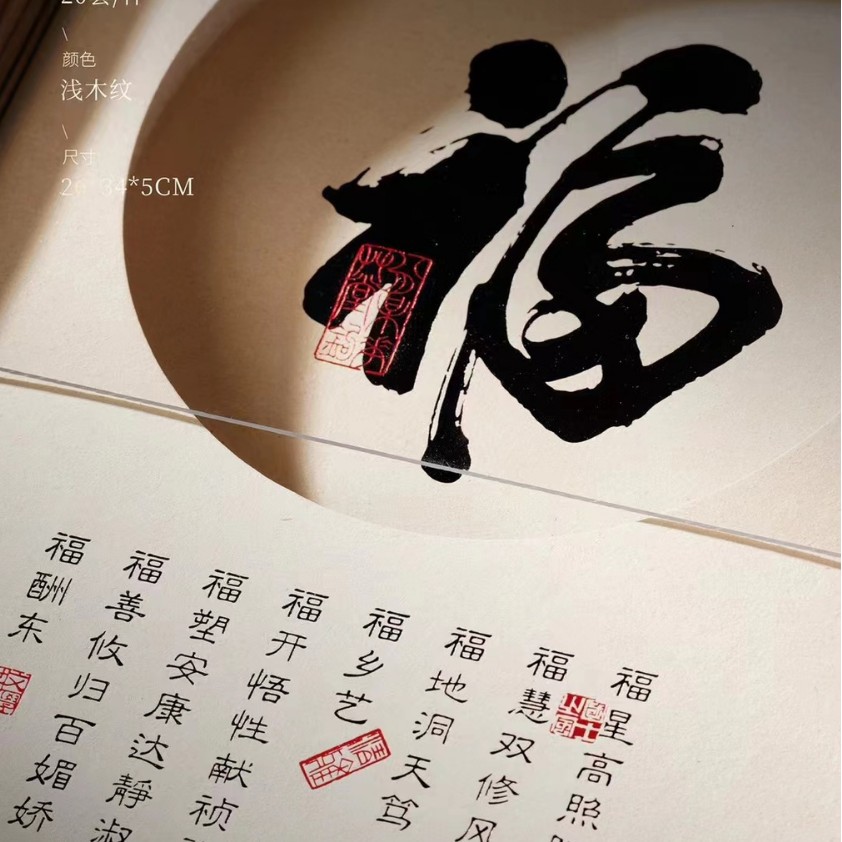 \
颜色
浅木纹
\
尺寸
26*34*5CM
福
福星高照
福慧双修风
福地洞天笃
福乡艺
福开悟性献祯
福塑安康达靜淑
福善攸归百媚娇
福酬东